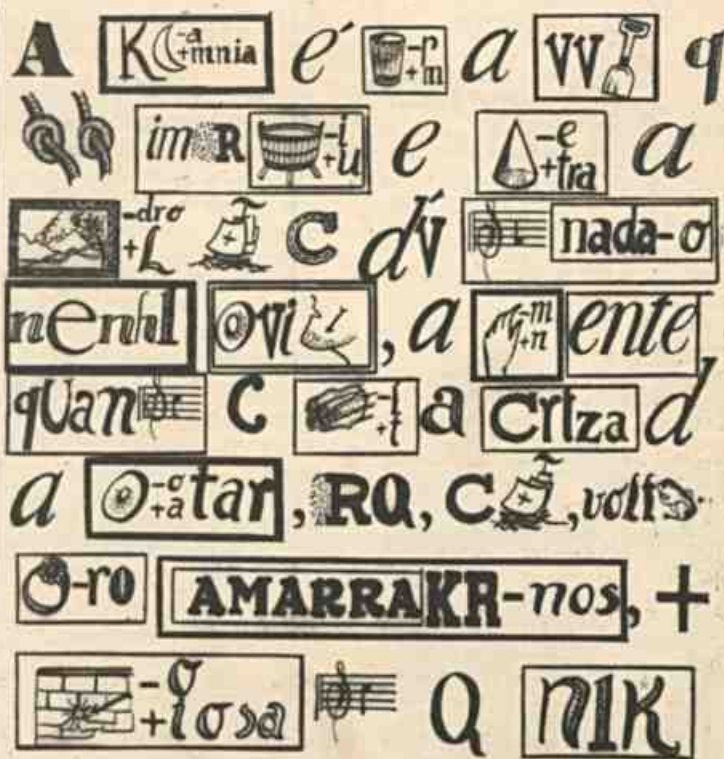 A K -a +mnia é -r +m a VV q
im R -i +u e -e +tra a
-dro +L C dv́ nada-o
nenhI Ovi , a -m +n ente
quan C -l +t a CrIza d
a -o +a tar , RQ, C , volt
-ro AMARRAKR-nos, +
-o +iosa Q NIK